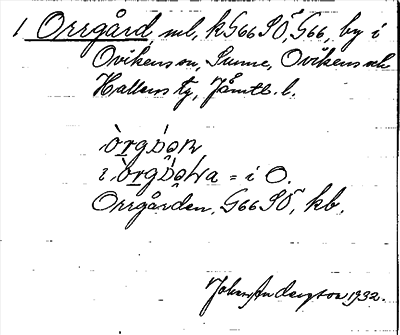 1 Orrgård ml, kG66SÖ, G66, by i
Ovikens sn, Sunne, Ovikens och
Hallens tg, Jämtl. l.
i = i O.
Orrgården, G66SÖ, kb.
Johan Anderzson 1932.